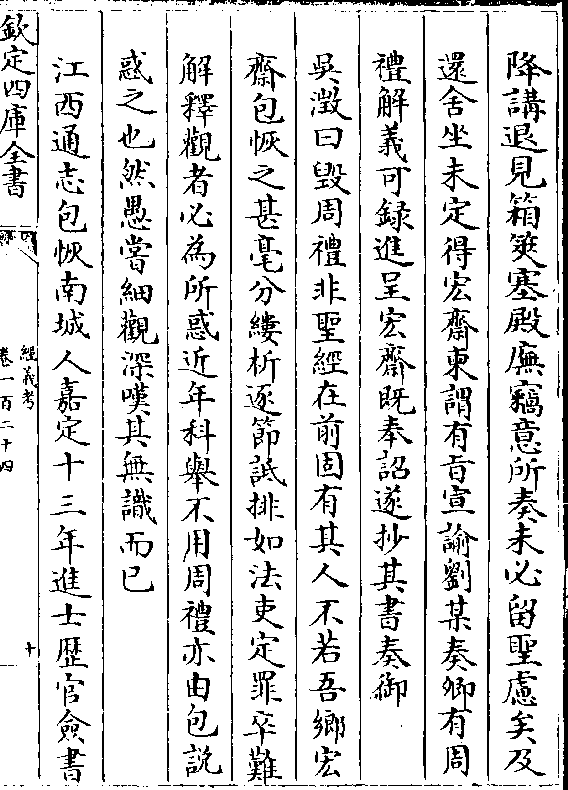 降講退見箱筴塞殿廡竊意所奏未必留聖慮矣及
還舍坐未定得宏齋柬謂有旨宣諭劉某奏卿有周
禮解義可録進呈宏齋既奉詔遂抄其書奏御
吳澂曰毁周禮非聖經在前固有其人不若吾鄉宏
齋包恢之甚毫分縷析逐節詆排如法吏定罪卒難
解釋觀者必為所惑近年科舉不用周禮亦由包説
惑之也然愚嘗細觀深嘆其無識而已
江西通志包恢南城人嘉定十三年進士歴官僉書
欽定四庫全書
經義考
卷一百二十四
十